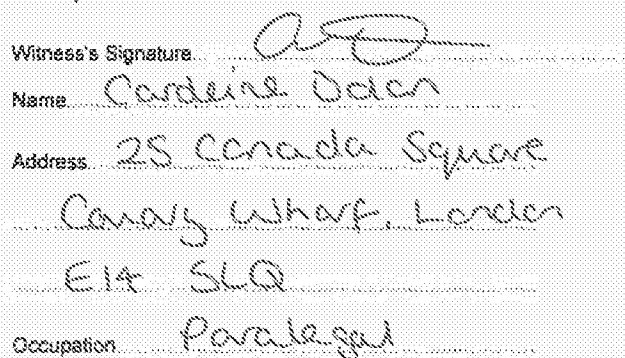 Witness's Signature
Name Cardeine Dolan
Address 25 Canada Square
Canary Wharf, London
E14 5LQ
Occupation Paralegal